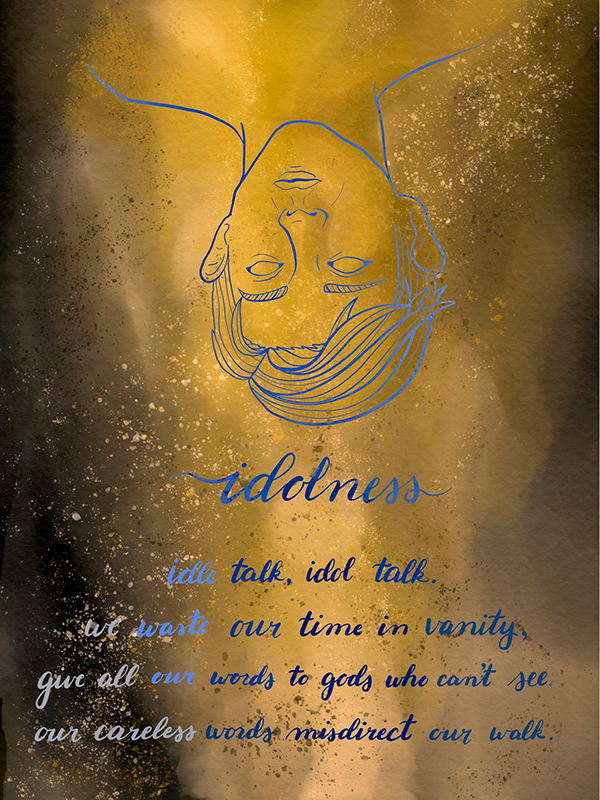 idolness
idle talk, idol talk.
we waste our time in vanity,
give all our words to gods who can't see.
our careless words misdirect our walk.